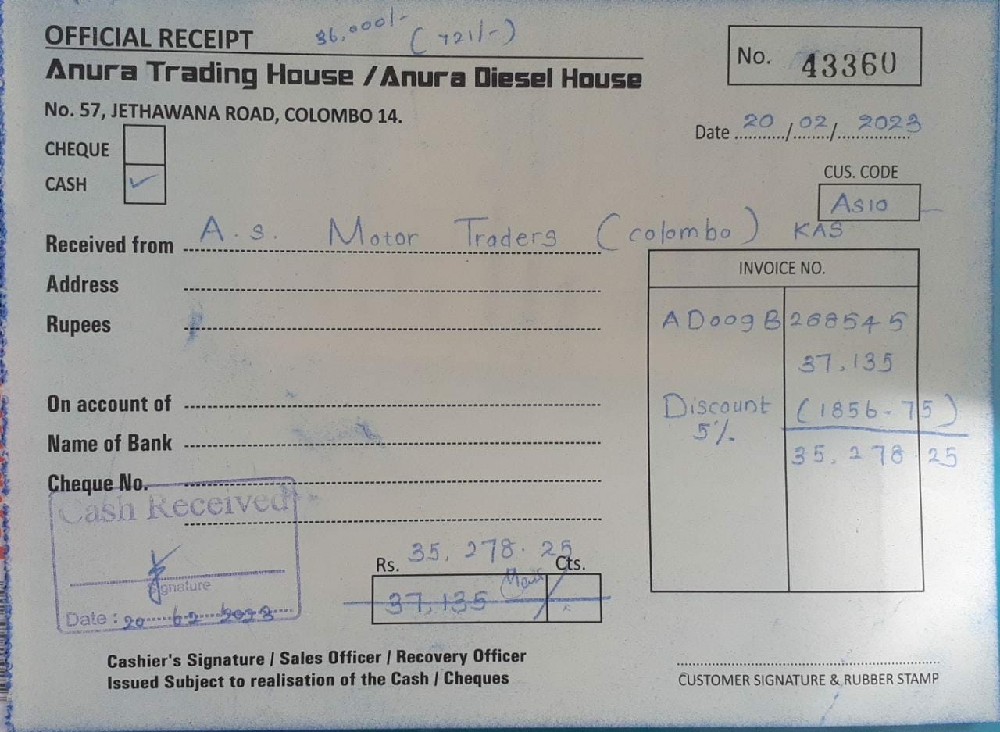 OFFICIAL RECEIPT 36,000/- (721/-)
Anura Trading House / Anura Diesel House
No. 43360
No. 57, JETHAWANA ROAD, COLOMBO 14.
Date 20/02/2023
CHEQUE
CASH ✓
CUS. CODE
AS10
Received from A.S. Motor Traders (colombo) KAS
Address
Rupees
INVOICE NO.
AD009B 268545
37,135
Discount (1856-75)
5%
35,278 25
On account of
Name of Bank
Cheque No.
Cash Received
Signature
Date : 20 02 2023
35,278.25
Rs. Cts.
37,135
Cashier's Signature / Sales Officer / Recovery Officer
Issued Subject to realisation of the Cash / Cheques
CUSTOMER SIGNATURE & RUBBER STAMP